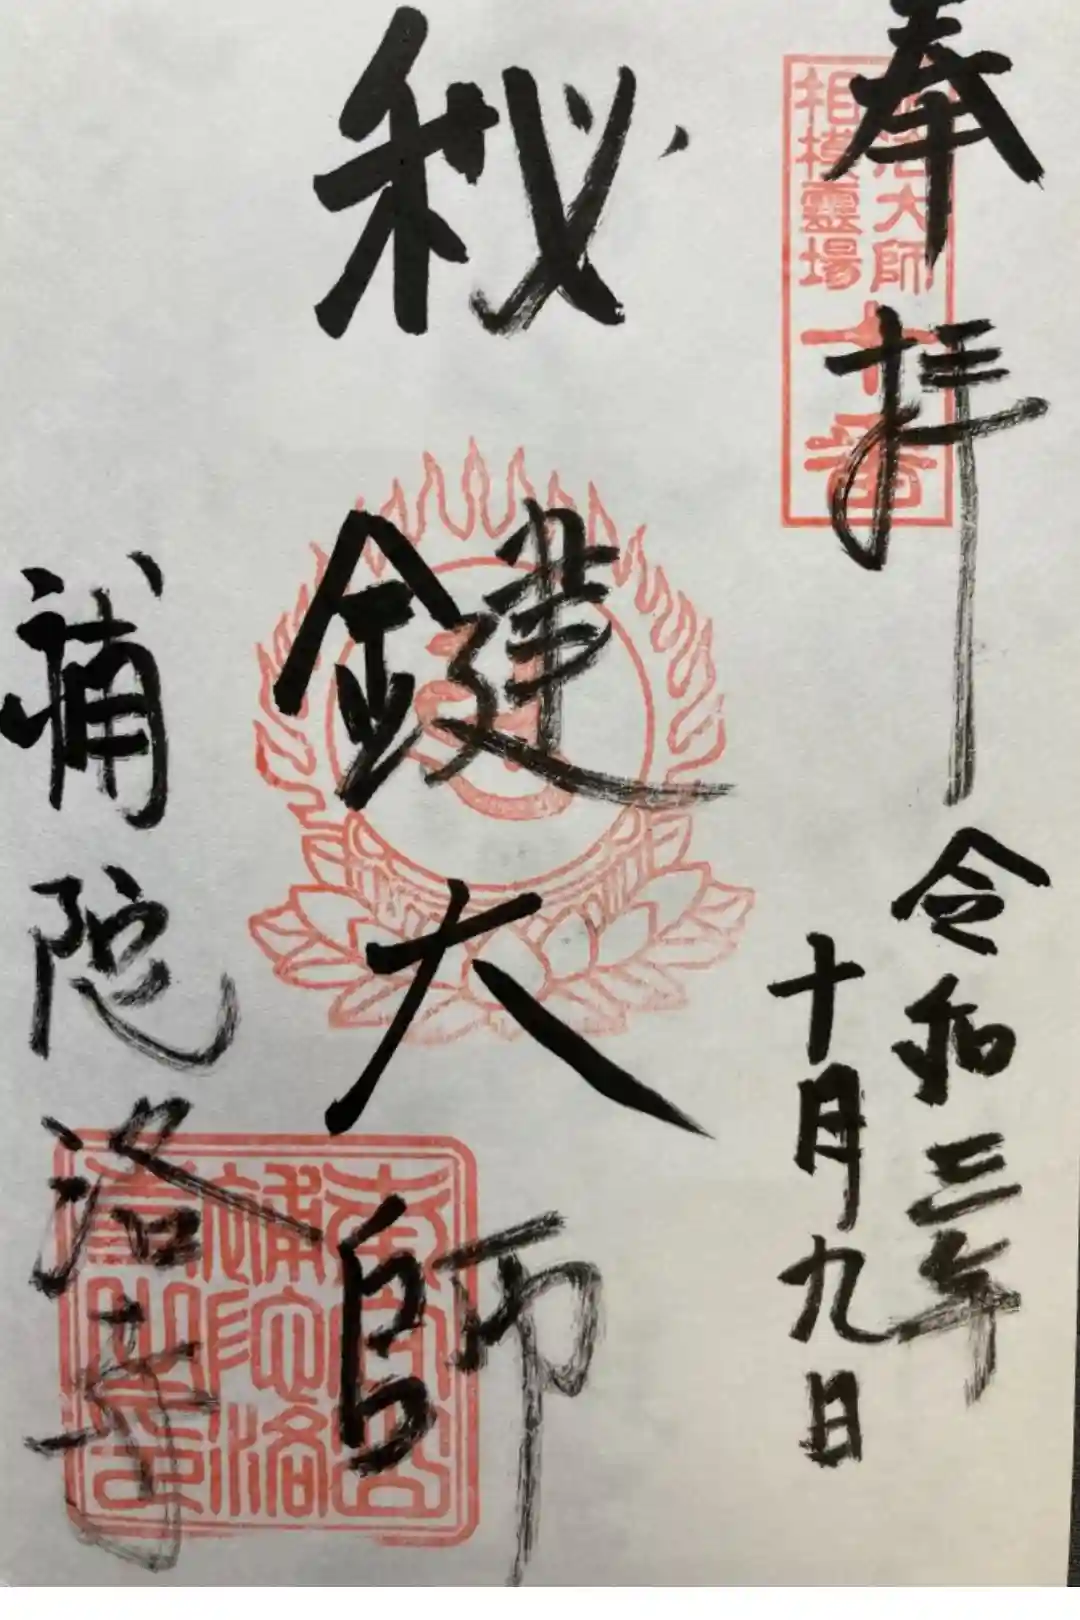 奉拝
弘法大師
相模霊場
十番
令和三年
十月九日
秘鍵大師
補陀洛寺
南向山
補陀洛